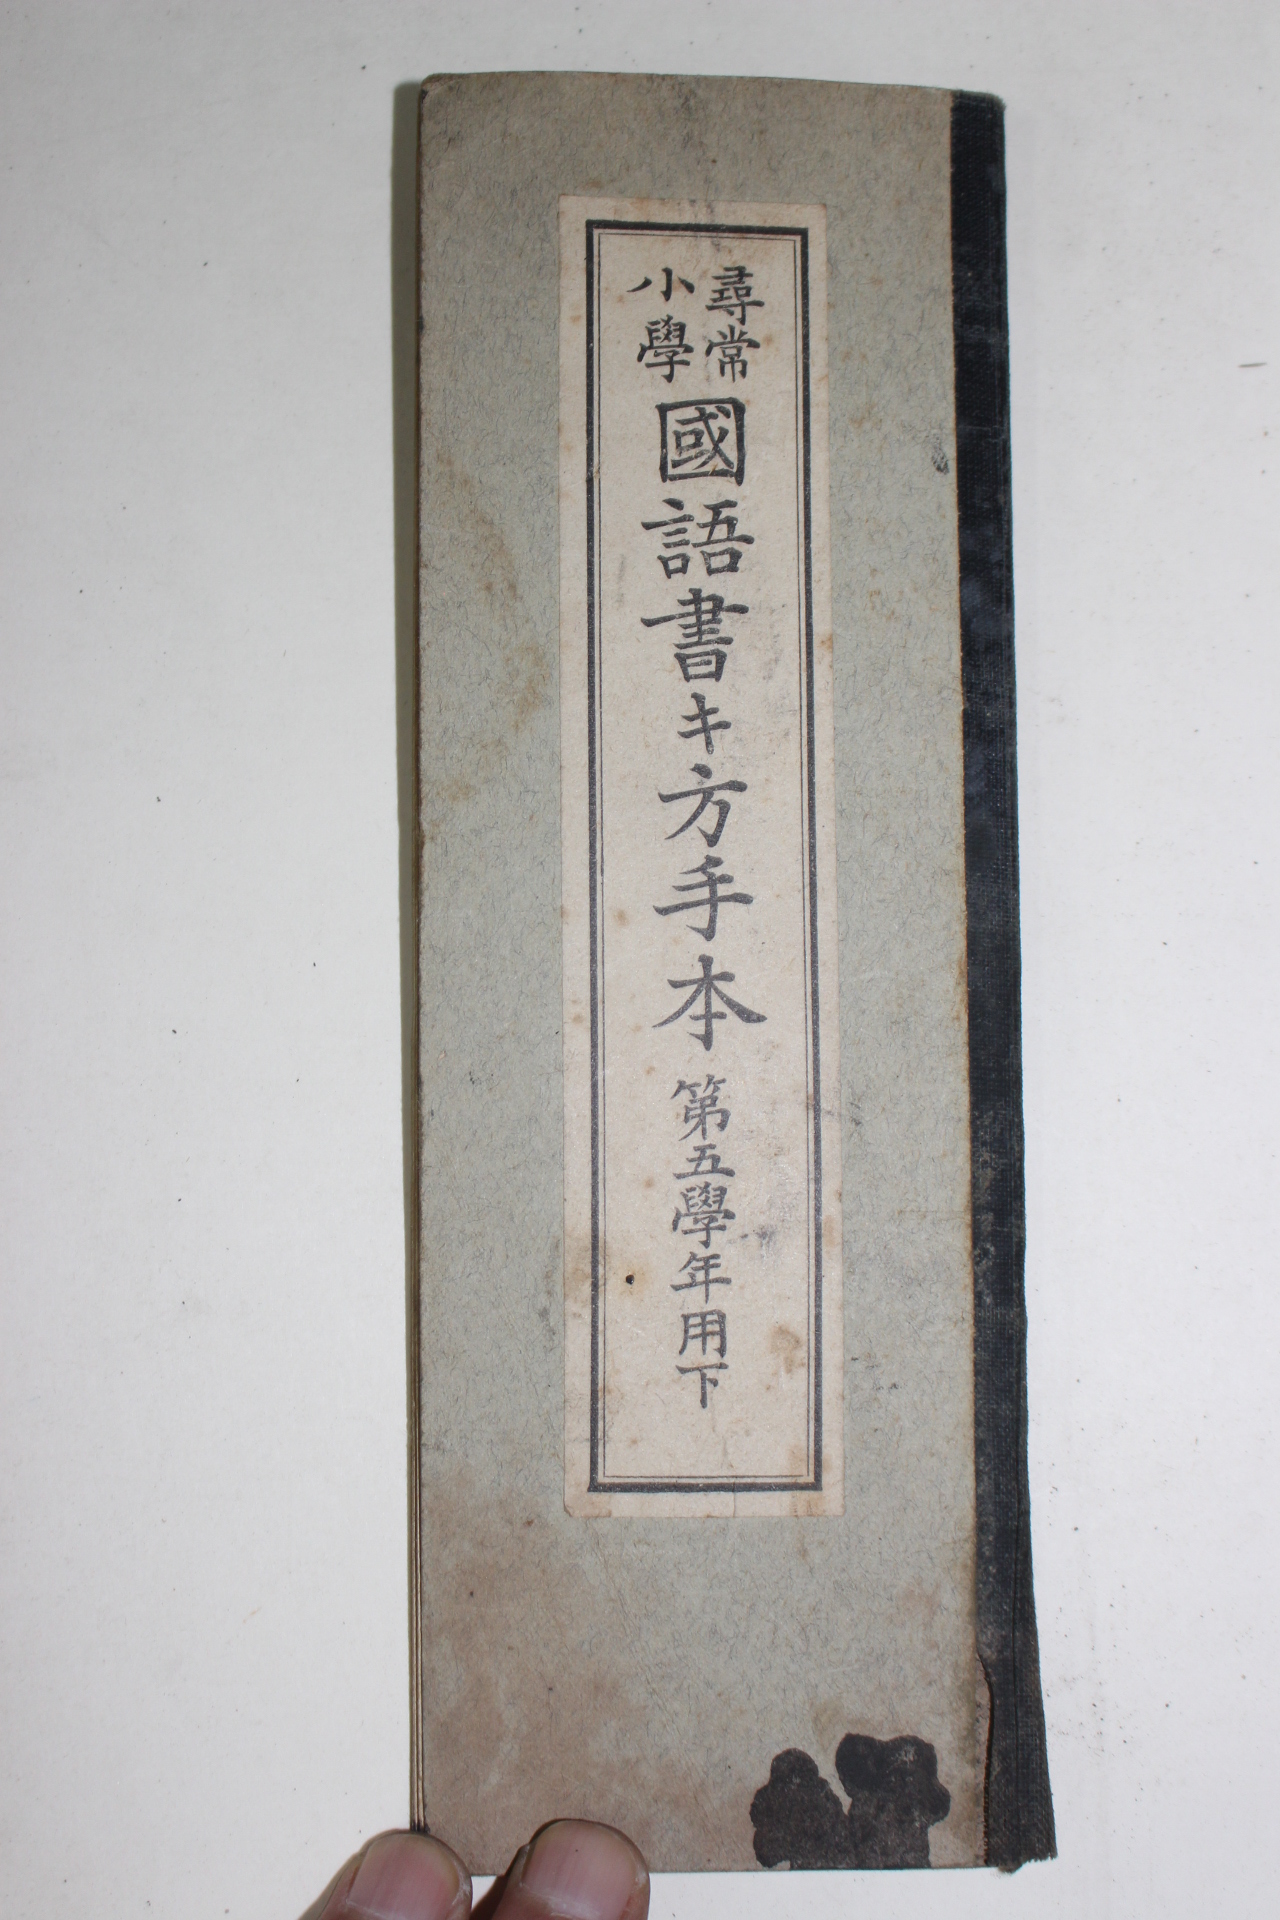 尋常
小學
國語書キ方手本 第五學年用下